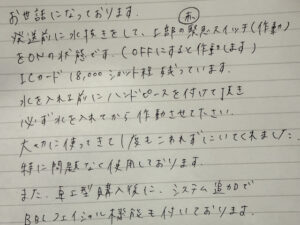 お世話になっております。
発送前に水抜きをして、上部の緊急スイッチ(作動)
赤
をONの状態です。(OFFにすると作動します)
ICカード 18,000ショット程 残っています。
水を入れる前にハンドピースを付けて頂き
必ず水を入れてから作動させて下さい。
大切に使ってきて1度もこわれずにいてくれました。
特に問題なく使用しております。
また、卓上型購入後に、システム追加で
BBLフェイシャル機能も付いております。